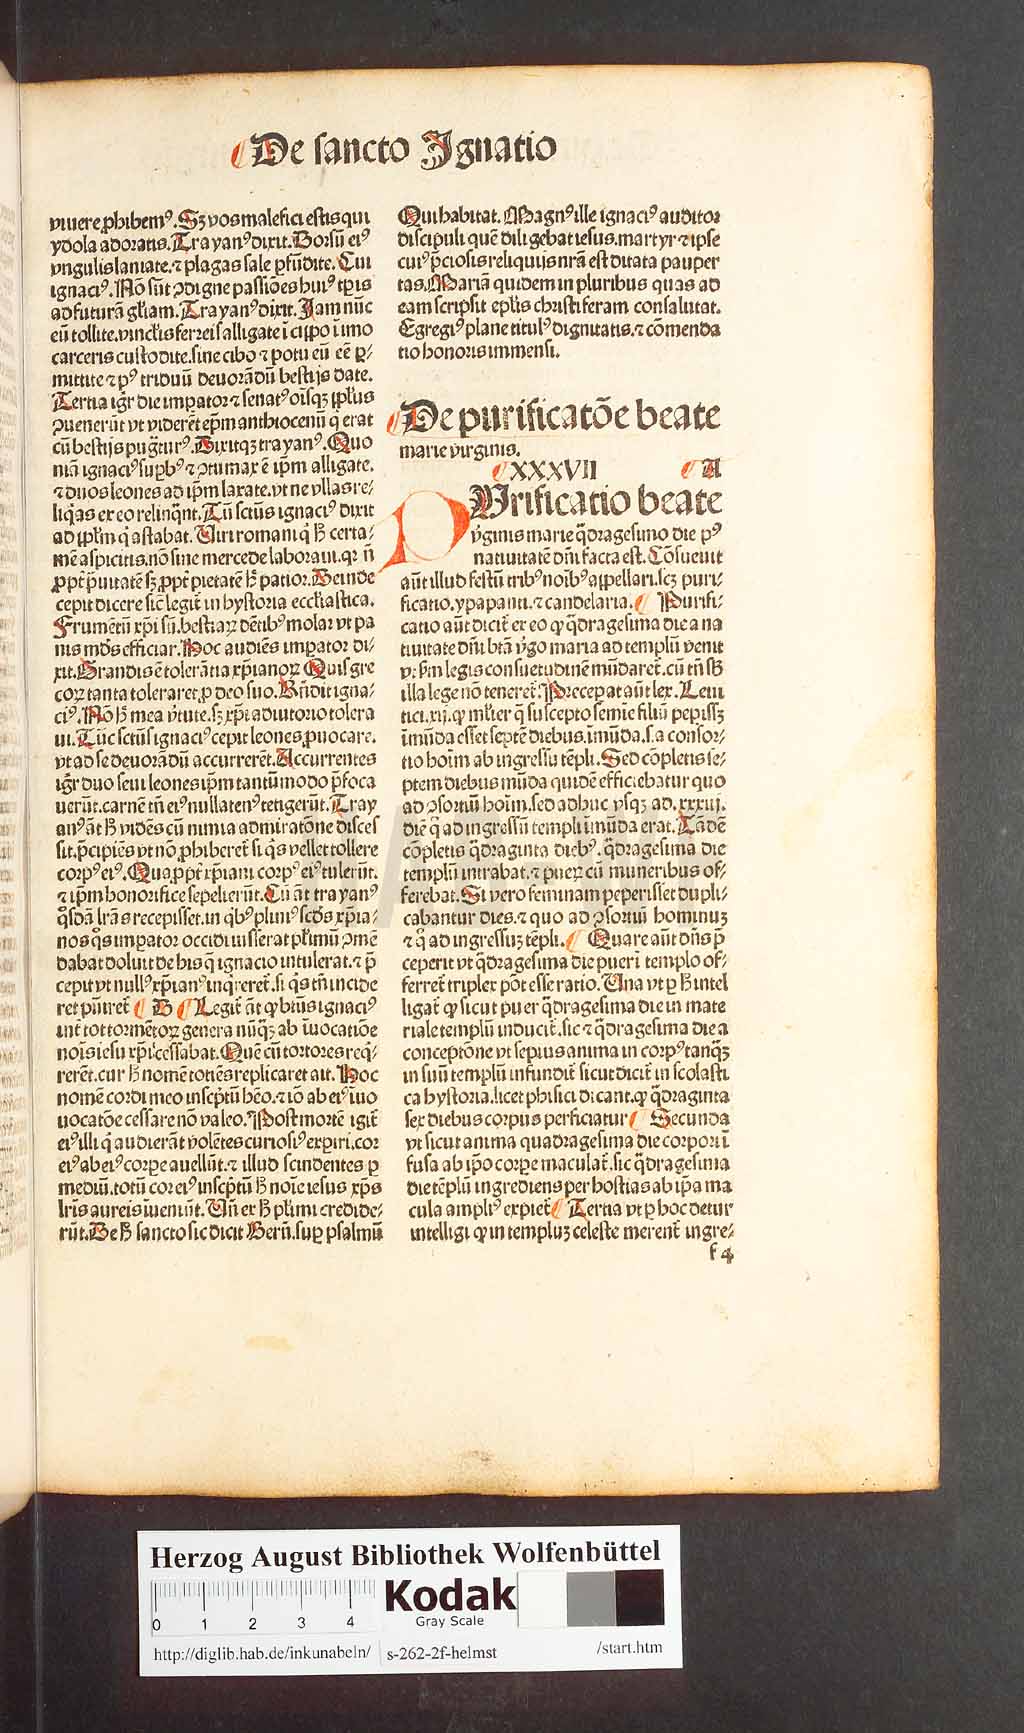 De sancto Ignatio
viuere ꝓhibemꝰ. Sꝫ vos malefici estis qui
ydola adoratis. Trayanꝰ dixit. Dorsū eiꝰ
vngulis laniate. ⁊ plagas sale ꝑfūdite. Cui
ignaciꝰ. Nō sūt ꝯdigne passiōes huiꝰ tꝑis
ad futurā gl̄iam. Trayanꝰ dixit. Jam nūc
eū tollite. vincl̄is ferreis alligate ī cippo ī imo
carceris custodite. sine cibo ⁊ potu eū eē ꝑ-
mittite ⁊ pꝰ triduū deuorādū bestijs date.
Tertia igr̄ die imꝑator ⁊ senatꝰ oīsqꝫ ppl̄us
ꝯuenerūt vt viderēt ep̄m anthiocenū q̄ erat
cū bestijs pugꝰturꝰ. Dixitqꝫ trayanꝰ. Quo
niā ignaciꝰ suꝑbꝰ ⁊ ꝯtumax ē ip̄m alligate.
⁊ duos leones ad ip̄m laxate. vt ne vllas re-
liq̄as ex eo relinq̄nt. Tū sctūs ignaciꝰ dixit
ad ppl̄m q̄ astabat. Uiri romani q̄ h̄ certa-
mē aspicitis. nō sine mercede laboraui. qꝛ n̄
ꝓpt̄ p̄uitatē sꝫ ꝓpt̄ pietatē h̄ patior. Deinde
cepit dicere sic̄ legit̄ in hystoria eccl̄iastica.
Frumētū xp̄i sū. bestiaꝝ dētibꝰ molar vt pa
nis mūdꝰ efficiar. Hoc audiēs imꝑator di-
xit. Grandis ē tolerātia xp̄ianoꝝ Quis gre
coꝝ tanta toleraret ꝓ deo suo. Rn̄dit igna-
ciꝰ. Nō h̄ mea v̄tute. sꝫ xp̄i adiutorio tolera
ui. Tūc sctūs ignaciꝰ cepit leones ꝓuocare.
vt ad se deuorādū accurrerēt. Accurrentes
igr̄ duo seui leones ip̄m tantūmodo p̄foca
uerūt. carnē tn̄ eiꝰ nullatenꝰ tetigerūt. Tray
anꝰ āt h̄ vidēs cū nimia admiratōne disces
sit. p̄cipiēs vt nō ꝓhiberet̄ si q̄s vellet tollere
corpꝰ eiꝰ. Quaꝓpt̄ xp̄iani corpꝰ eiꝰ tulerūt.
⁊ ip̄m honorifice sepelierūt. Cū āt trayanꝰ
q̄sdā lr̄as recepisset. in q̄bꝰ pliniꝰ scd̄s xp̄ia-
nos q̄s imꝑator occidi iusserat pl̄imū ꝯmē
dabat doluit de his q̄ ignacio intulerat. ⁊ p̄
cepit vt nullꝰ xp̄ianꝰ inq̄reret̄. si q̄s tn̄ incide
ret puniret̄ B Legit̄ āt q̄ btūs ignaciꝰ
int̄ tot tormētoꝝ genera nūq̄ꝫ ab īuocatiōe
nois iesu xp̄i cessabat. Quē cū tortores req̄-
rerēt. cur h̄ nomē totiēs replicaret ait. Hoc
nomē cordi meo inscptū hēo. ⁊ iō ab eiꝰ īuo
uocatōe cessare nō valeo. Post mortē igit̄
eiꝰ illi q̄ audierāt volētes curiosiꝰ exꝑiri. cor
eiꝰ ab eiꝰ corꝑe auellūt. ⁊ illud scindentes ꝑ
mediū. totū cor eiꝰ inscptū h̄ noīe iesus xp̄s
lr̄is aureis iueniūt. Uñ ex h̄ pl̄imi credide-
rūt. De h̄ sancto sic dicit Bern̄. suꝑ psalmū
Qui habitat. Magnꝰ ille ignaciꝰ auditor
discipuli quē diligebat iesus. martyr ⁊ ipse
cuiꝰ p̄ciosis reliquijs nr̄a est ditata pauper
tas. Mariā quidem in pluribus quas ad
eam scripsit ep̄lis christiferam consalutat.
Egregiꝰ plane titulꝰ dignitatis. ⁊ cōmenda
tio honoris immensi.
De purificatōe beate
marie virginis.
CXXXVII A
PUrificatio beate
v̄ginis marie q̄dragesimo die pꝰ
natiuitatē dn̄i facta est. Cōsueuit
aūt illud festū tribꝰ noībꝰ appellari. scꝫ puri-
ficatio. ypapanti. ⁊ candelaria. Purifi-
catio aūt dicit̄ ex eo ꝙ q̄dragesima die a na
tiuitate dn̄i btā v̄go maria ad templū venit
vt ẜm legis consuetudinē mūdaret̄. cū tn̄ sb̄
illa lege nō teneret̄. Precepat aūt lex. Leui
tici. xij. ꝙ mlier q̄ suscepto semīe filiū peꝑissꝫ
īmūda esset septē diebus. īmūda. s. a consor-
tio hoīm ab ingressū tēpli. Sed cōpletis se-
ptem diebus mūda quidē efficiebatur quo
ad ꝯsortiū hoīm. sed adhuc vsqꝫ ad. xxxiij.
diē q̄ ad ingressū templi īmūda erat. Tādē
cōpletis q̄draginta diebꝰ. q̄dragesima die
templū intrabat. ⁊ pueꝝ cū muneribus of-
ferebat. Si vero feminam peperisset dupli-
cabantur dies. ⁊ quo ad ꝯsortiū hominuꝫ
⁊ q̄ ad ingressuꝫ tēpli. Quare aūt dn̄s p̄
ceperit vt q̄dragesima die pueri templo of-
ferret̄ triplex pōt esse ratio. Una vt ꝑ h̄ intel
ligat̄ ꝙ sicut puer q̄dragesima die in mate
riale templū inducit̄. sic ⁊ q̄dragesima die a
conceptōne vt sepius anima in corpꝰ tanq̄ꝫ
in suū templū infundit̄ sicut dicit̄ in scolasti
ca hystoria. licet phisici dicant. ꝙ q̄draginta
sex diebus corpus perficiatur Secunda
vt sicut anima quadragesima die corpori ī
fusa ab ip̄o corꝑe maculat̄. sic q̄dragesima
die tēplū ingrediens per hostias ab ip̄a ma
cula ampliꝰ expiet̄ Tertia vt ꝑ hoc detur
intelligi ꝙ in templuꝫ celeste merent̄ ingre-
f 4
Herzog August Bibliothek Wolfenbüttel
0 1 2 3 4
Kodak
Gray Scale
http://diglib.hab.de/inkunabeln/ s-262-2f-helmst /start.htm